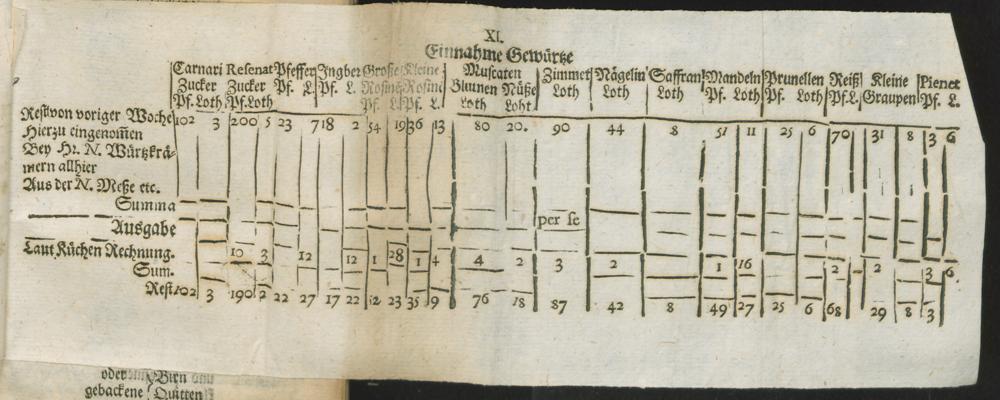 XI.
Einnahme Gewürtze
Carnari Resenat Pfeffer Ingber Große Kleine Muscaten Zimmet Nägelin Saffran Mandeln Prunellen Reiß Kleine Pienet
Zucker Zucker Pf. L. Pf. L. Rosine Rosine Blumen Nüße Loth Loth Loth Pf. Loth Pf. Loth Pf. L. Graupen Pf. L.
Pf. Loth Pf. Loth Pf. L. Pf. L. Loth Loht
Rest von voriger Woche 102 3 200 5 23 7 18 2 54 19 36 13 80 20. 90 44 8 51 11 25 6 70 31 8 3 6
Hierzu eingenommen
Bey Hr. N. Würtzkrä-
mern allhier
Aus der N. Meße etc.
Summa
Ausgabe per se
Laut Küchen Rechnung. 10 3 12 12 1 28 1 4 4 2 3 2 1 16 2 2 3 6
Sum.
Rest 102 3 190 2 22 27 17 22 52 23 35 9 76 18 87 42 8 49 27 25 6 68 29 8 3
oder Birn
gebackene Quitten